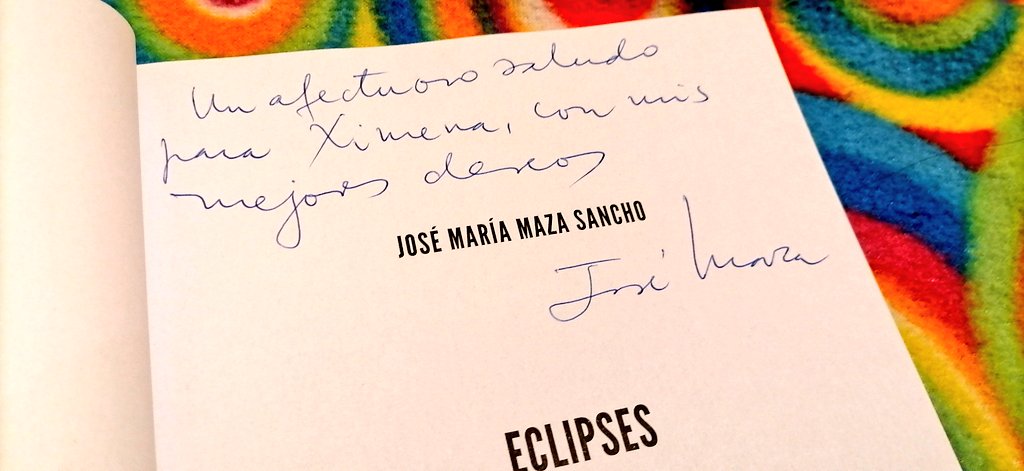 Un afectuoso saludo
para Ximena, con mis
mejores deseos
JOSÉ MARÍA MAZA SANCHO
José Maza
ECLIPSES